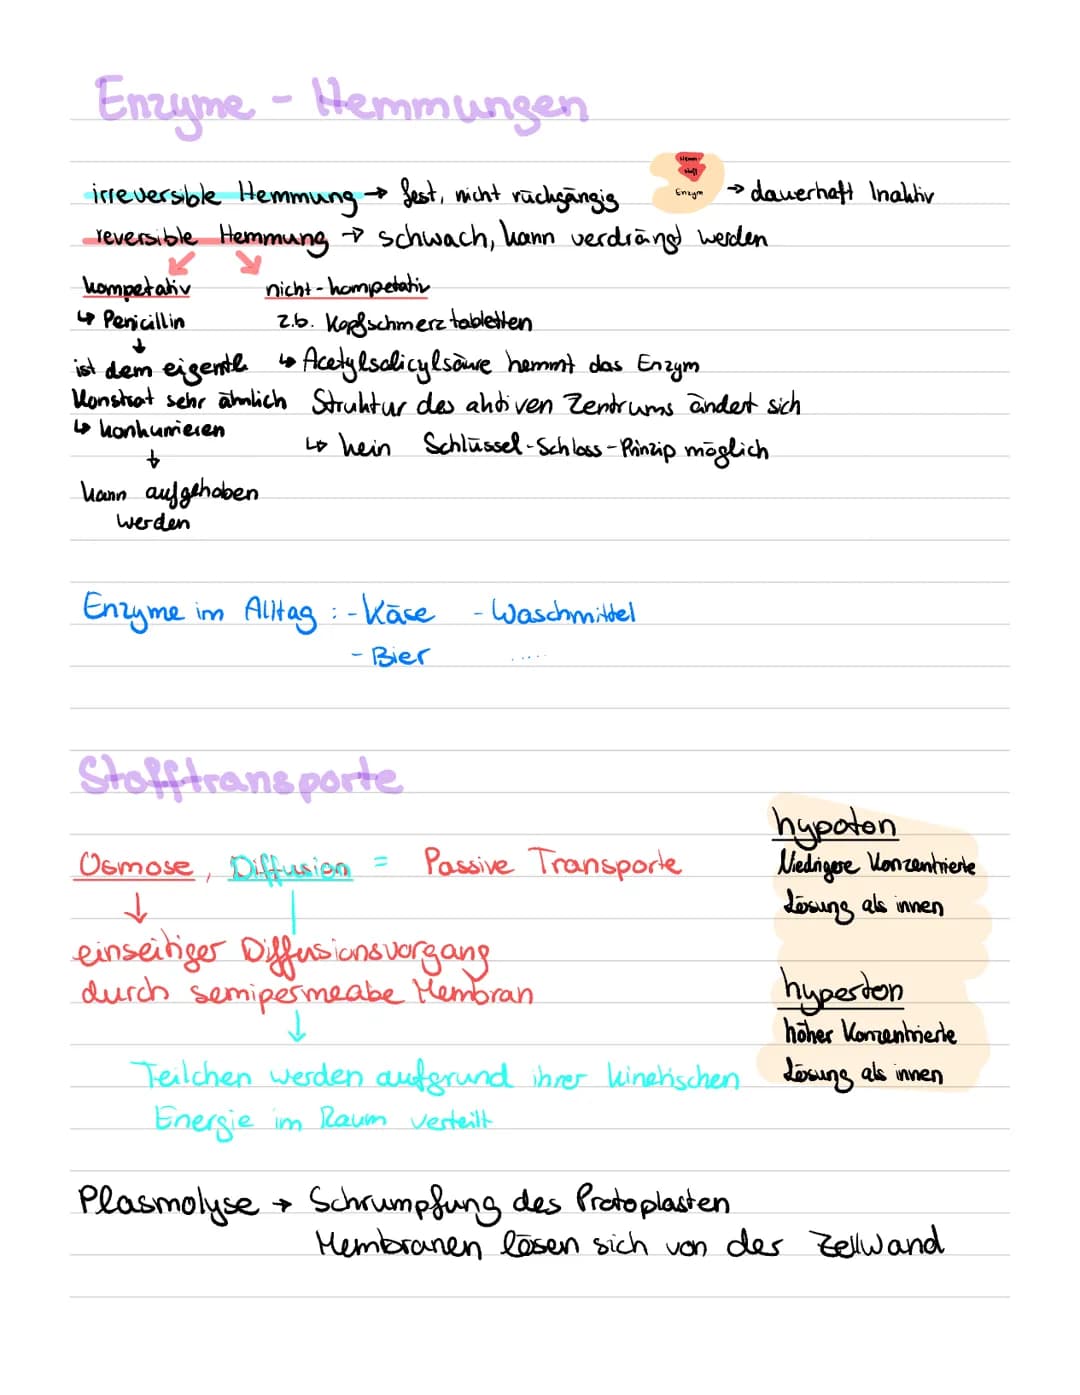 Enzyme - Hemmungen
Hemm-
stoff
Enzym
irreversible Hemmung → fest, nicht rückgängig → dauerhaft Inaktiv
reversible Hemmung → schwach, kann verdrängt werden
kompetativ
nicht-kompetativ
↳ Penicillin
z.b. Kopfschmerztabletten
ist dem eigentl.
↳ Acetylsalicylsäure hemmt das Enzym
Konstrat sehr ähnlich
Struktur des aktiven Zentrums ändert sich
↳ konkurrieren
↳ kein Schlüssel-Schloss-Prinzip möglich
kann aufgehoben
werden
Enzyme im Alltag : - Käse - Waschmittel
- Bier .....
Stofftransporte
Osmose, Diffusion = Passive Transporte
einseitiger Diffusionsvorgang
durch semipermeabe Membran
Teilchen werden aufgrund ihrer kinetischen
Energie im Raum verteilt
hypoton
Niedrigere Konzentrierte
Lösung als innen
hyperton
höher Konzentrierte
Lösung als innen
Plasmolyse → Schrumpfung des Protoplasten
Membranen lösen sich von der Zellwand